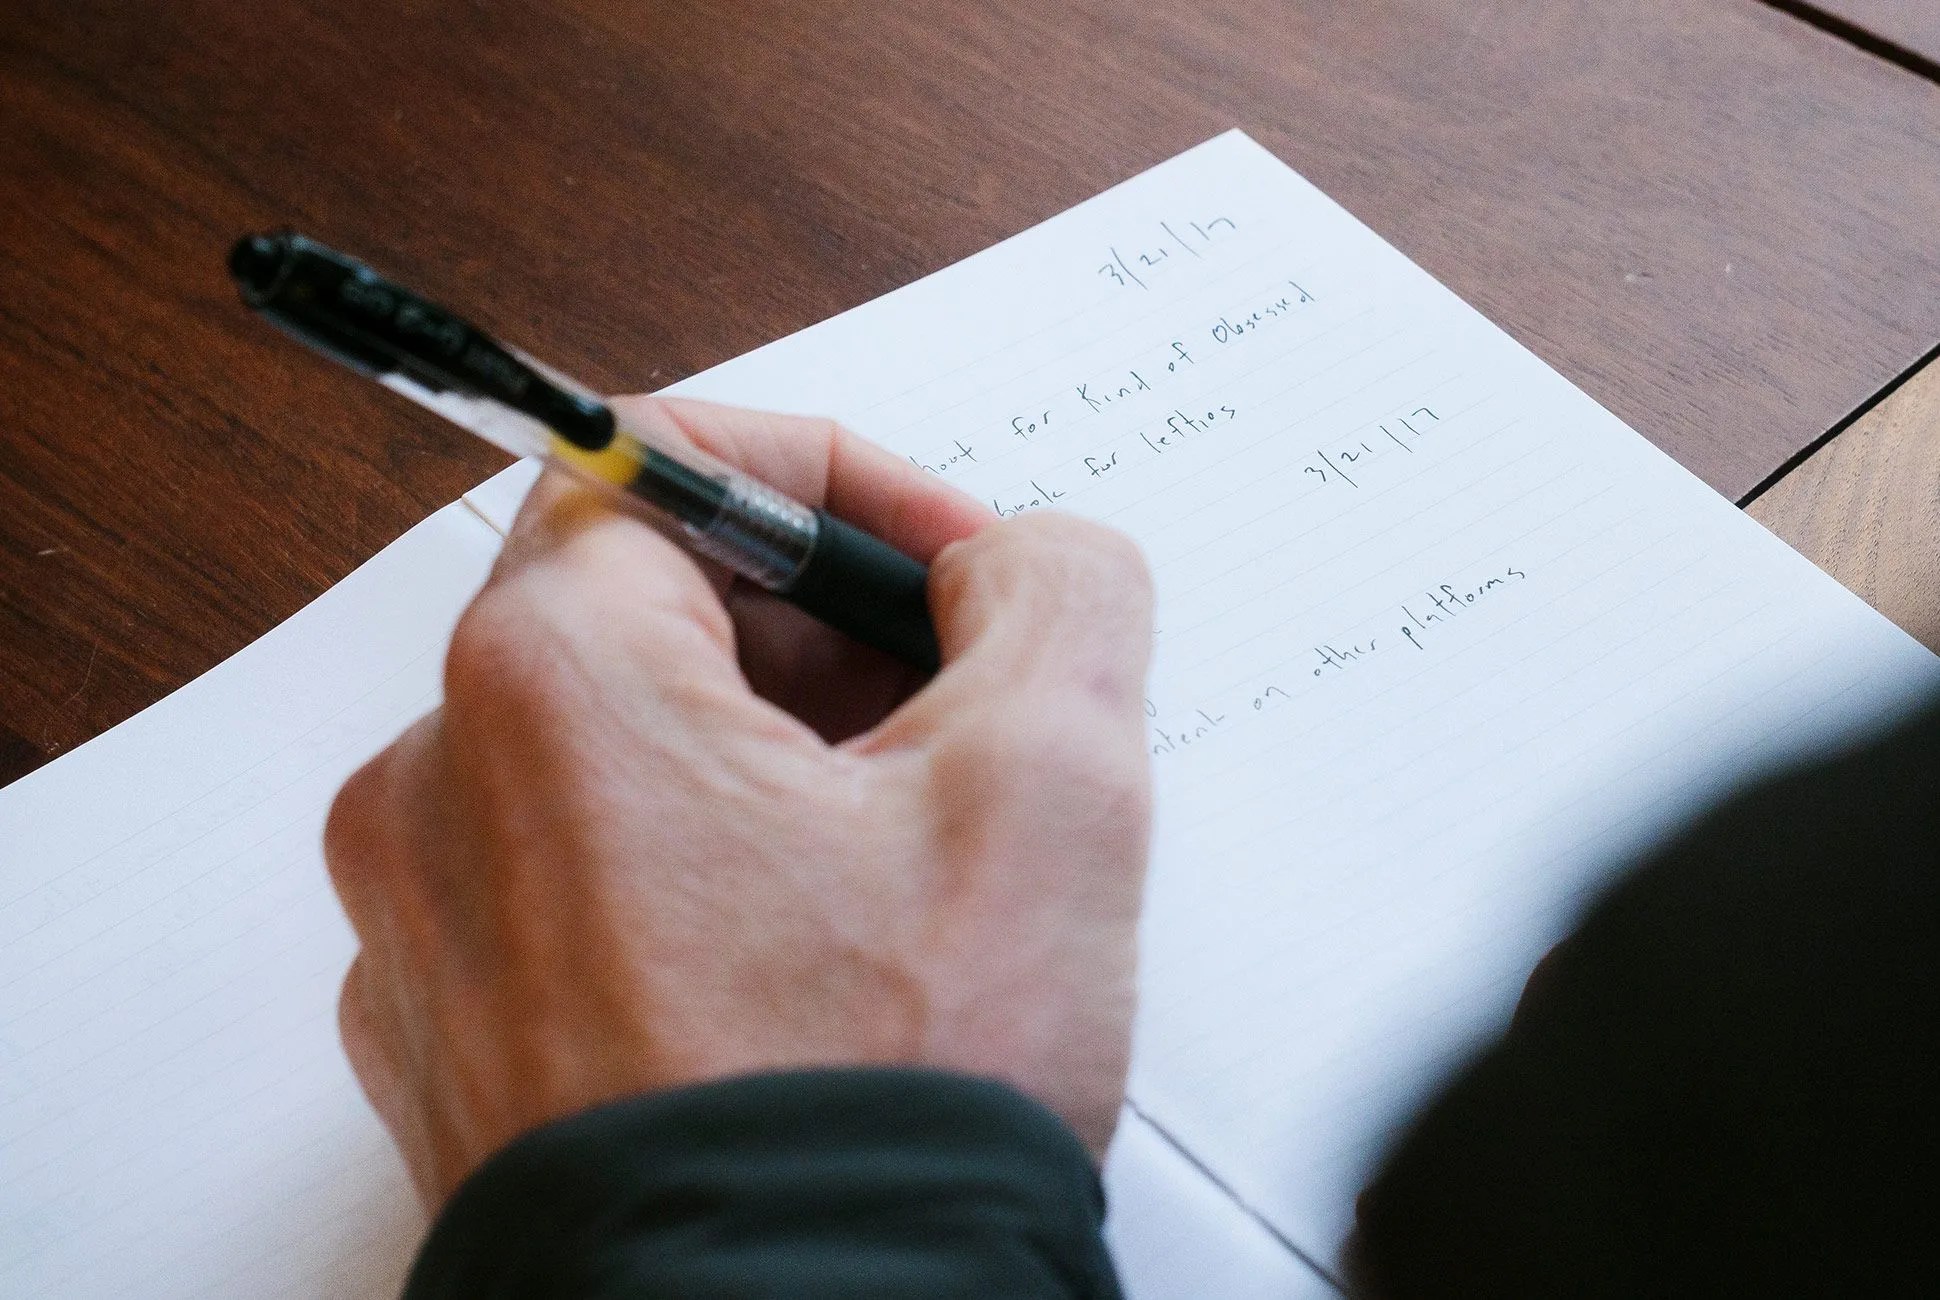 3/21/17
for Kind of Obsessed
book for lefties
3/21/17
on other platforms